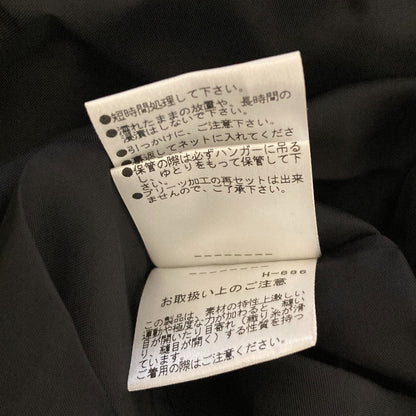 ●短時間処理して下さい。
●濡れたままの放置や、長時間の
浸漬はしないで下さい。
●引っかけに、ご注意下さい。
●裏返してネットに入れてくださ
●保管の際は必ずハンガーに吊る
し、ゆとりをもって保管して下
さい。
●プリーツ加工の再セットは出来
ませんので、ご了承下さい。
H-686
お取扱い上のご注意
この製品は、素材の特性上激しい
運動や極度な力が加わると、縫い
目が開いたり目寄れ(織り糸が滑
り、縫目が開く)する性質を持っ
ています。
ご着用の際はご注意ください。